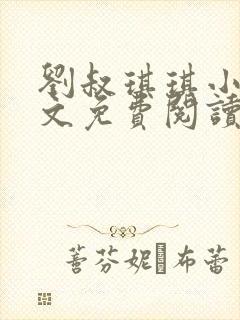 劉叔琪琪小
文免費閱讀
蔷芬妮·布蕾